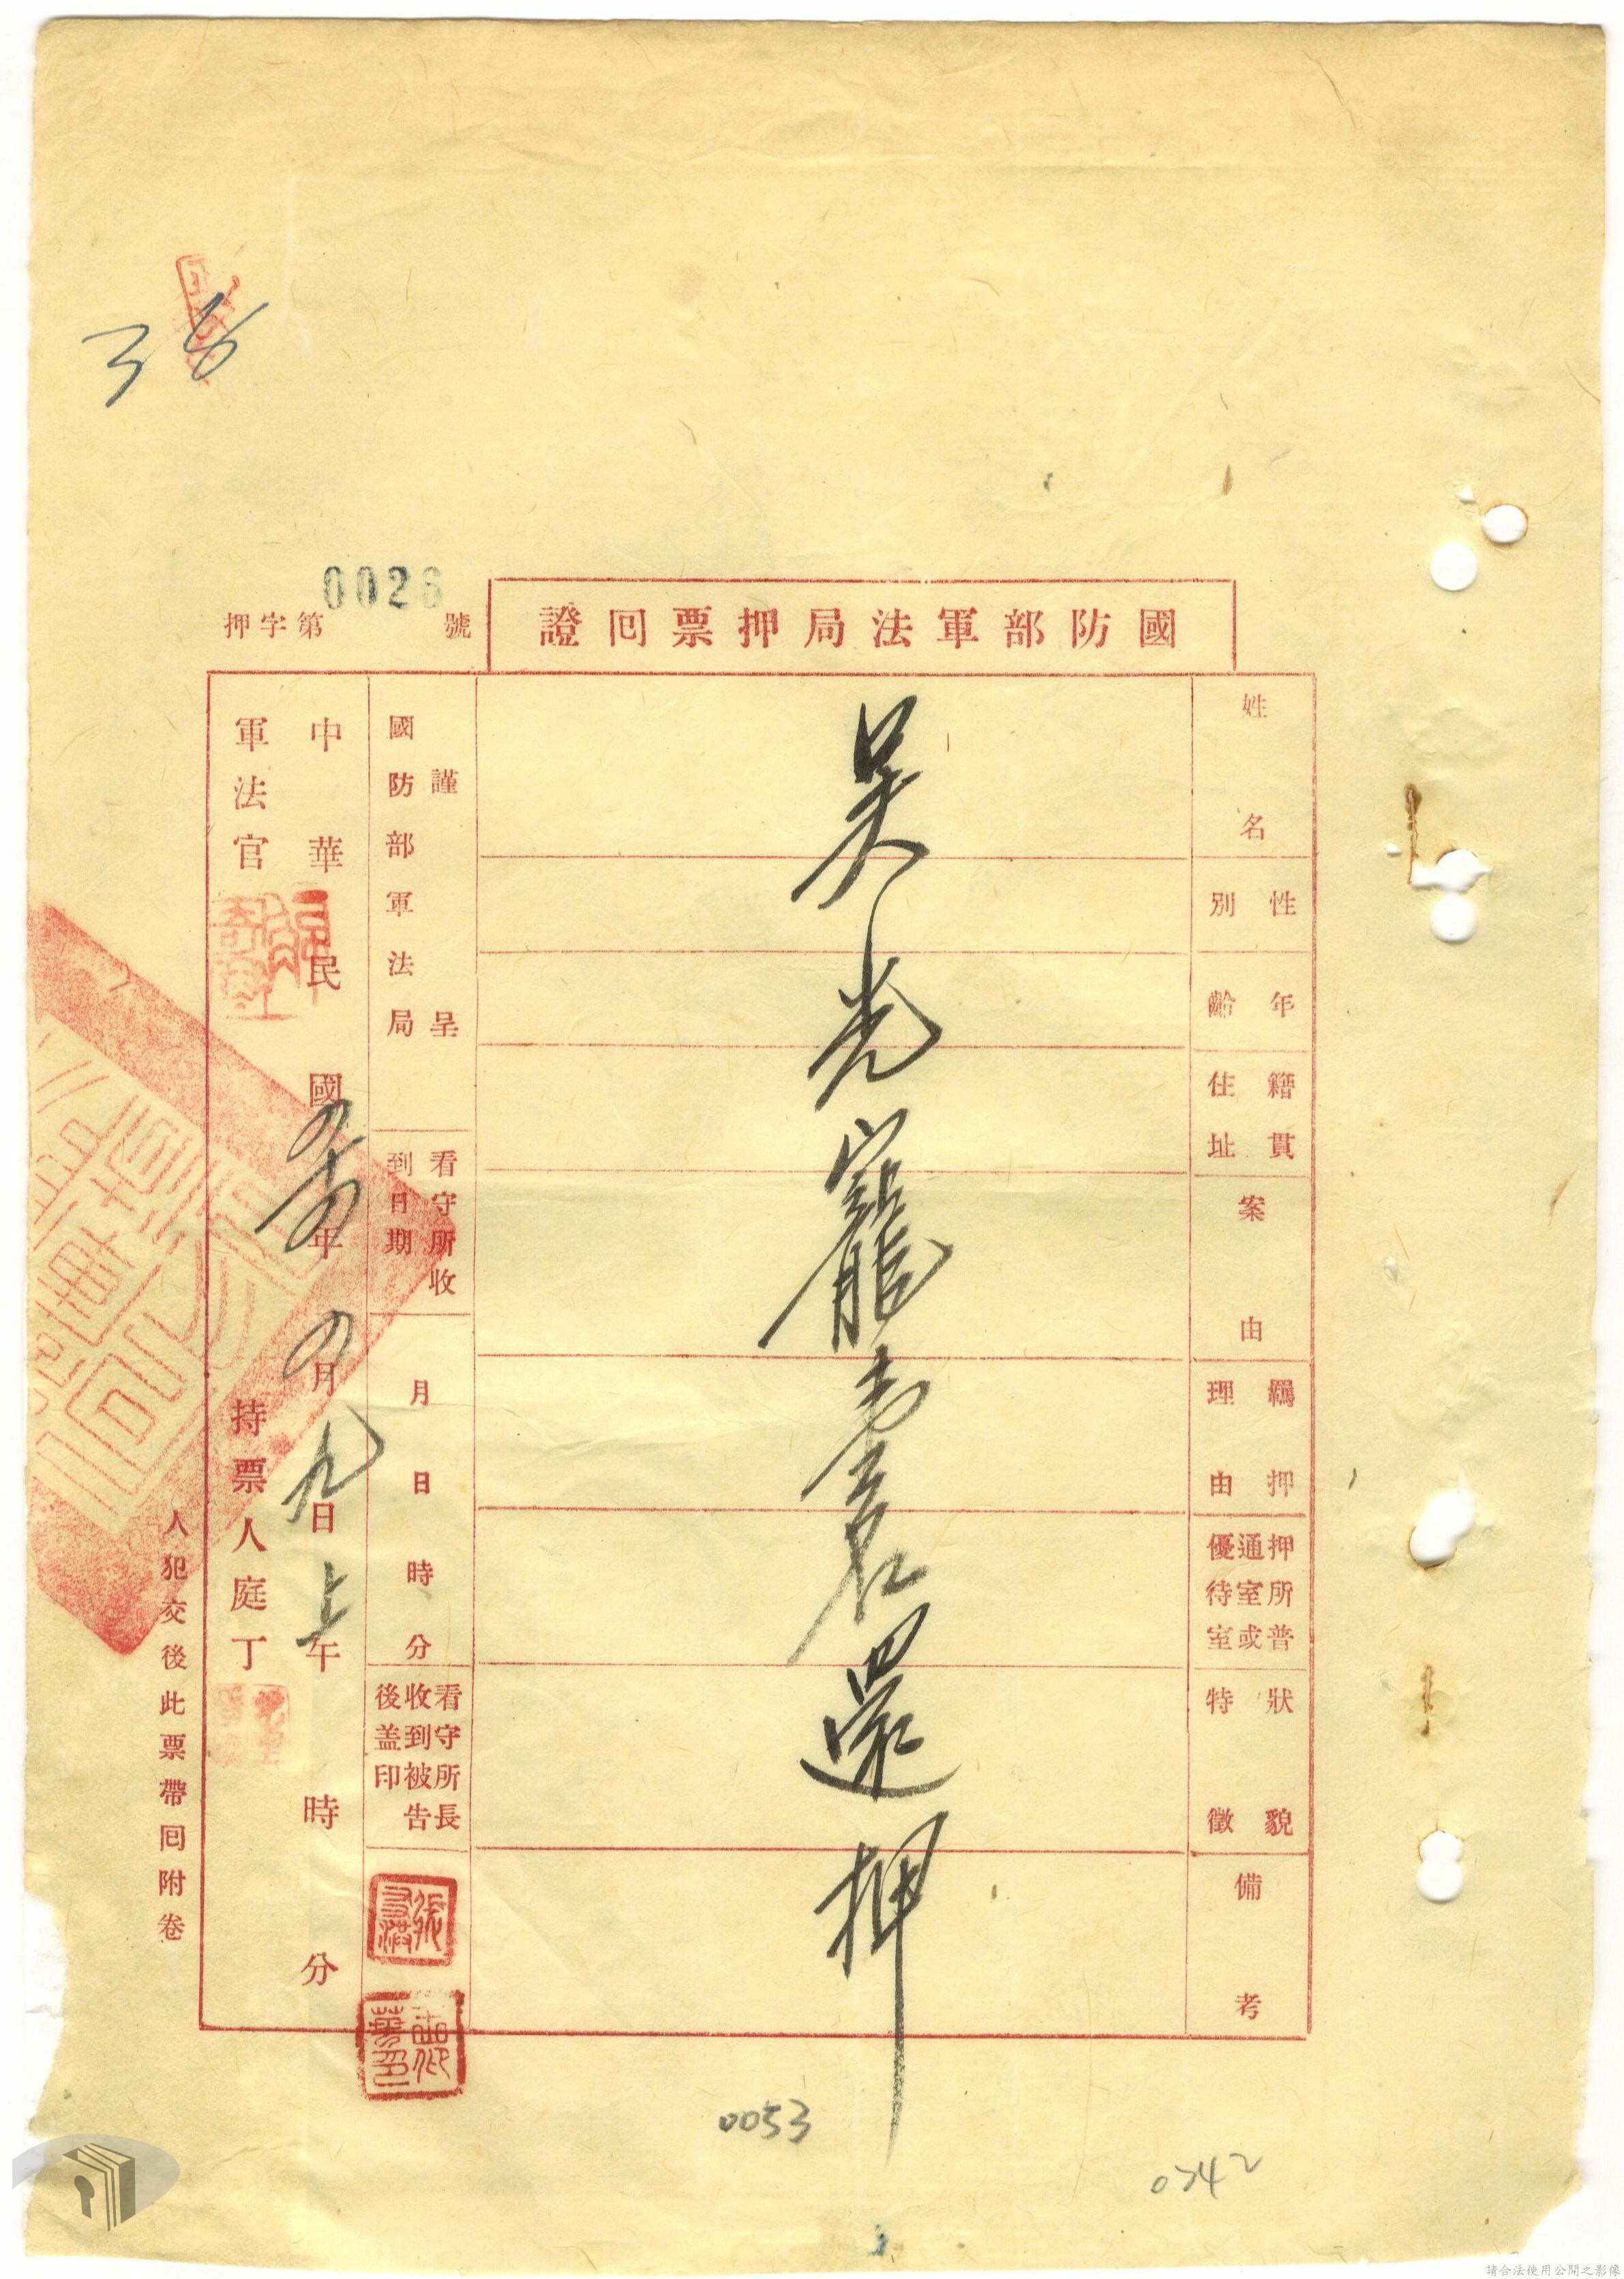 國防部軍法局押票囘證
押字第 號
姓名
性別
年齡
籍貫住址
案由
羈押理由
押所普通室或優待室
狀貌特徵
備考
吳光寵壹名還押
謹呈
國防部軍法局
看守所收到日期
月 日 時 分
看守所長收到被告後盖印
中華民國四十四年四月九日上午 時 分
軍法官
持票人庭丁
人犯交後此票帶囘附卷
0053
0742
請合法使用公開之影像